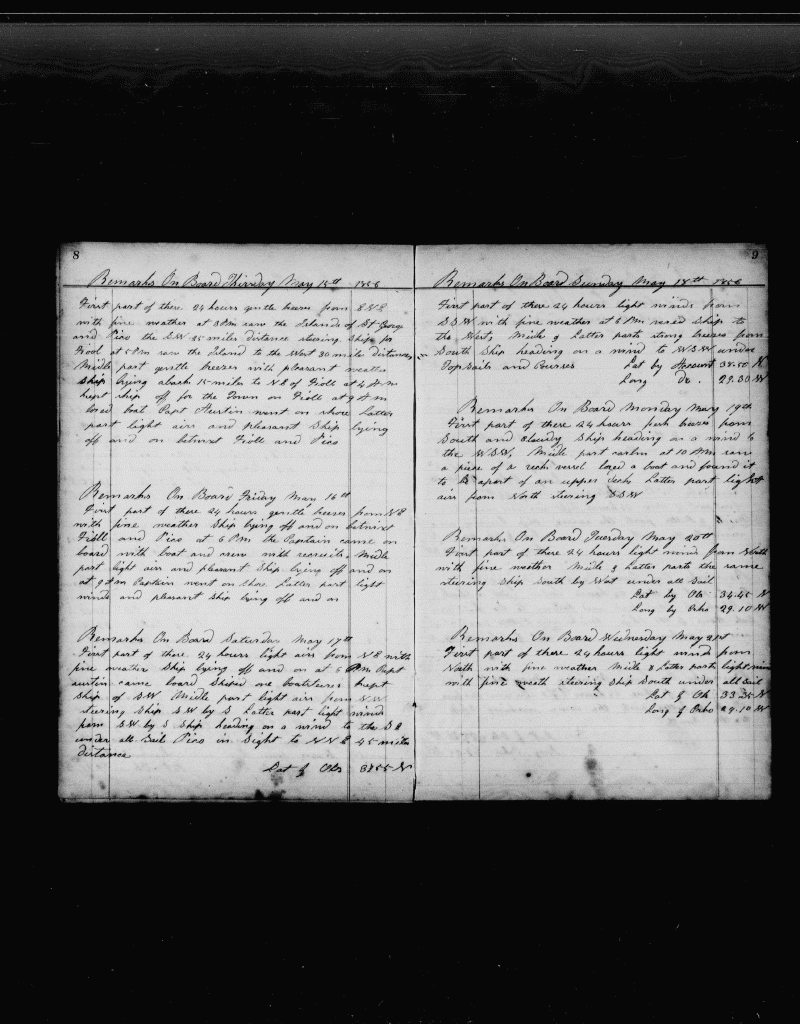 8
Remarks On Board Thirsday May 15th 1856
First part of these 24 hours gentle breeses from E.N.E
with fine weather at 3 Pm saw the Islands of St Georg
and Pico the S.W 25 miles distance steering Ship for
Fioll at 5 Pm saw the Island to the West 30 mile distance
Midle part gentle breeses with pleasant weather
Ship lying aback 15 miles to N E of Fioll at 4 A m
kept Ship off for the Town on Fioll at 9 A m
lored boat Capt Austin went on shore Latter
part light airs and pleasant Ship lying
off and on betwixt Fioll and Pico
Remarks On Board Friday May 16th
First part of these 24 hours gentle breeses from N E
with fine weather Ship lying off and on betwixt
Fioll and Pico at 6 Pm the Captain came on
board with boat and crew with recruits Midle
part light airs and pleasant Ship lying off and on
at 9 Am Captain went on Shore Latter part light
winds and pleasant Ship lying off and on
Remarks On Board Saturday May 17th
First part of these 24 hours light airs from N E with
fine weather Ship lying off and on at 6 Pm Capt
austin came board Shiped one boatsteerer kept
Ship of S.W Midle part light airs from N.W
steering Ship S.W by S Latter part light winds
from S.W by S Ship heading on a wind to the S E
under all Sail Pico in Sight to N N E 45 miles
distance
Lat by Obs 37.55 N
9
Remarks On Board Sunday May 18th 1856
First part of these 24 hours light winds from
S.S.W with fine weather at 5 Pm wared Ship to
the West, Midle & Latter parts strong breeses from
South Ship heading on a wind to W.S.W under
Topsails and Courses Lat by Account 38.50 N
Long Do. 29.30 W
Remarks On Board Monday May 19th
First part of these 24 hours fresh breeses from
South and cloudy Ship heading on a wind to
the W.S.W, Midle part carlm at 10 Am saw
a piece of a reck vessel lored a boat and found it
to be apart of an upper deck, Latter part light
airs from North steering S.S.W
Remarks On Board Tuesday May 20th
First part of these 24 hours light winds from North
with fine weather Midle & Latter parts the same
steering Ship South by West under all Sail
Lat by Obs 34.45 N
Long by Croho 29.10 W
Remarks On Board Wednesday May 21st
First part of these 24 hours light winds from
North with fine weather Midle & Latter parts light winds
with fine weath steering Ship South under all Sail
Lat by Ob 33.35 N
Long by Croho 29.10 W